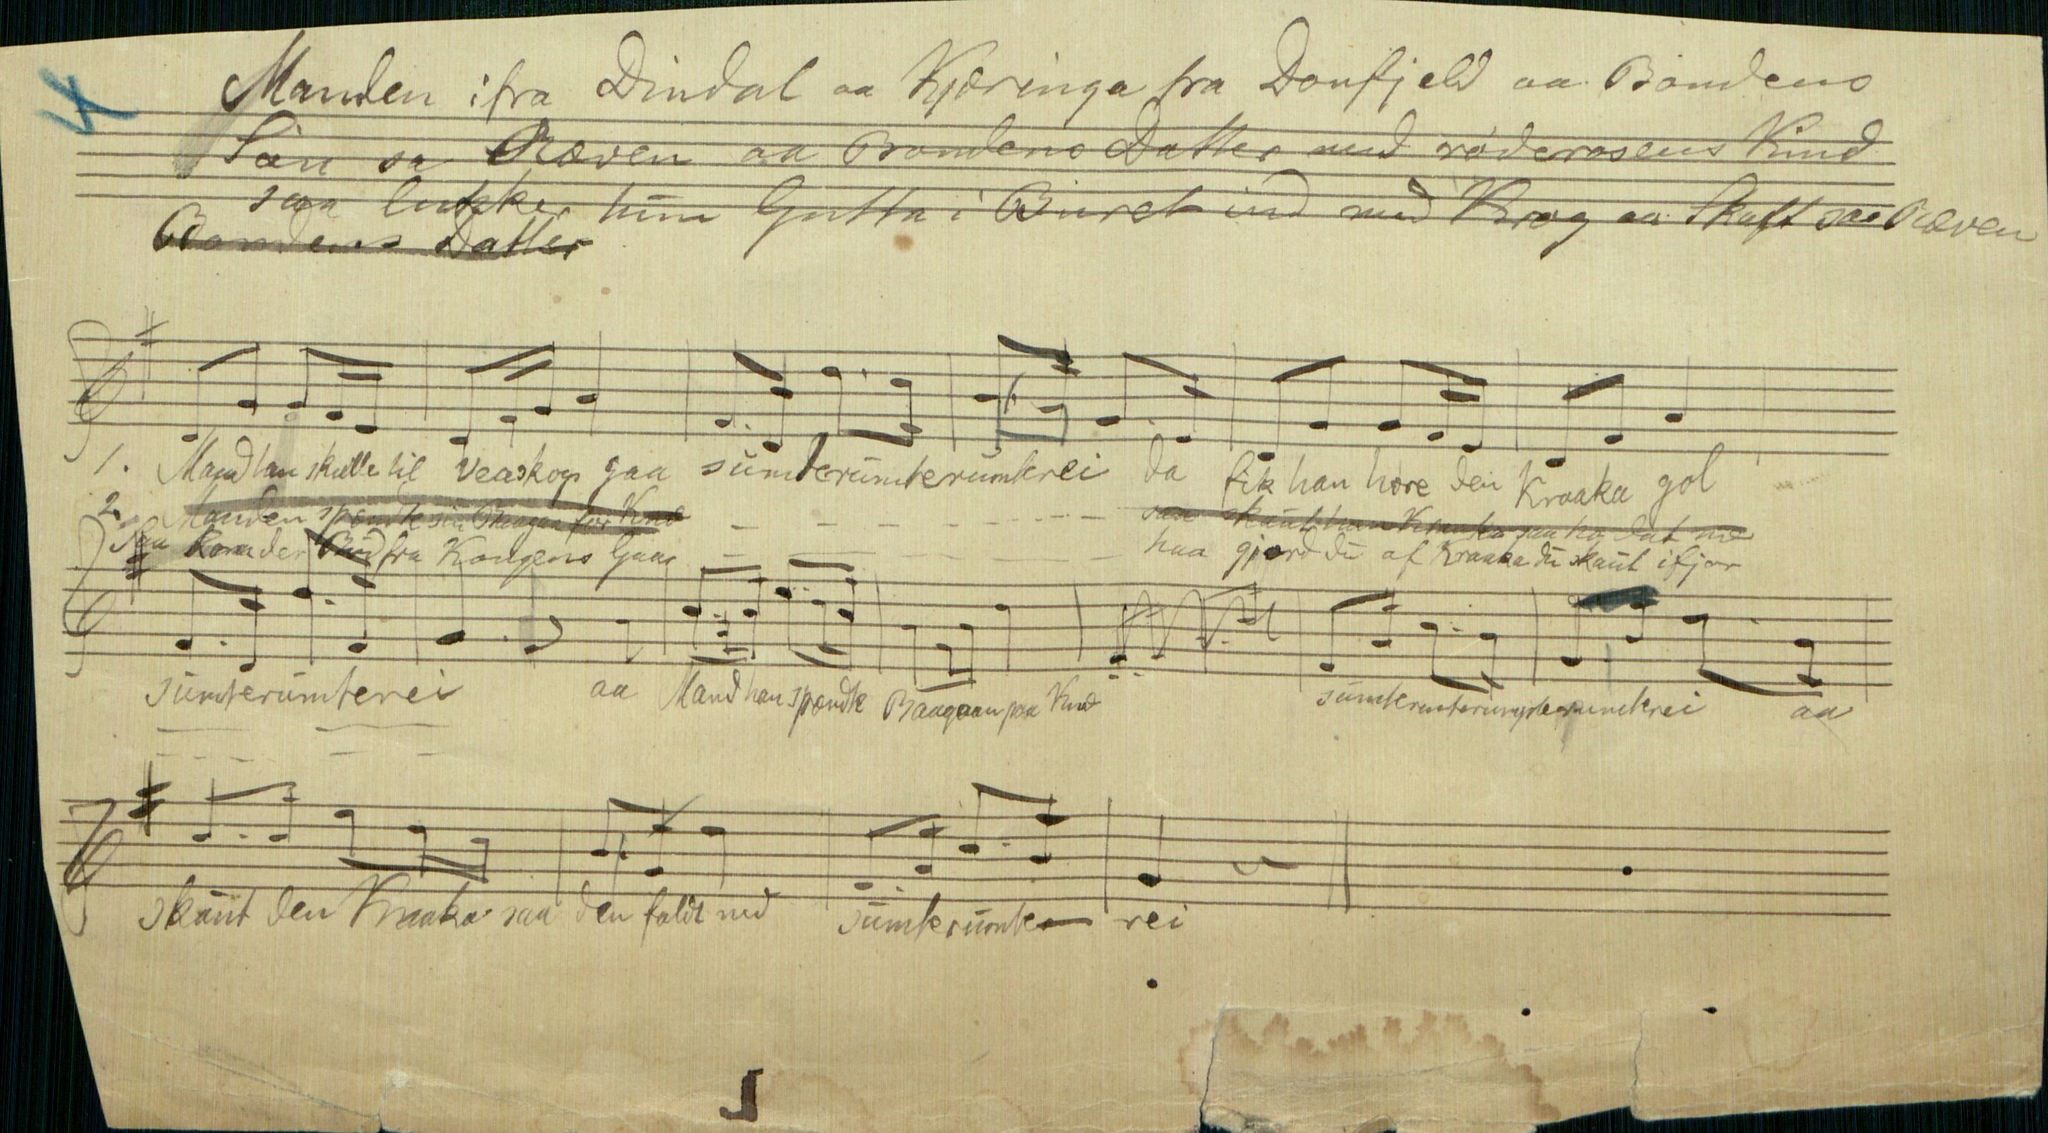 Manden ifra Dindal aa Kjæringa fra Donfjeld aa Bondens
Søn sa Ræven aa Bondens Datter med røderosens Kind
saa lukker hun Gutta i Buret ind med Krog aa Skaft saa Ræven
Bondens Datter
1. Mand han skulle til Veaskog gaa sumterumterumterei da fik han høre den Kraaka gol
2. Manden spændte sin Baagaa for Knæ
Saa kom der Bud fra Kongens Gaar haa gjord du af Kraaka du skaut ifjor
sumterumterei aa Mand han spændte Baagaan paa Knæ aa
skaut den Kraaka saa den faldt ned sumterumte rei